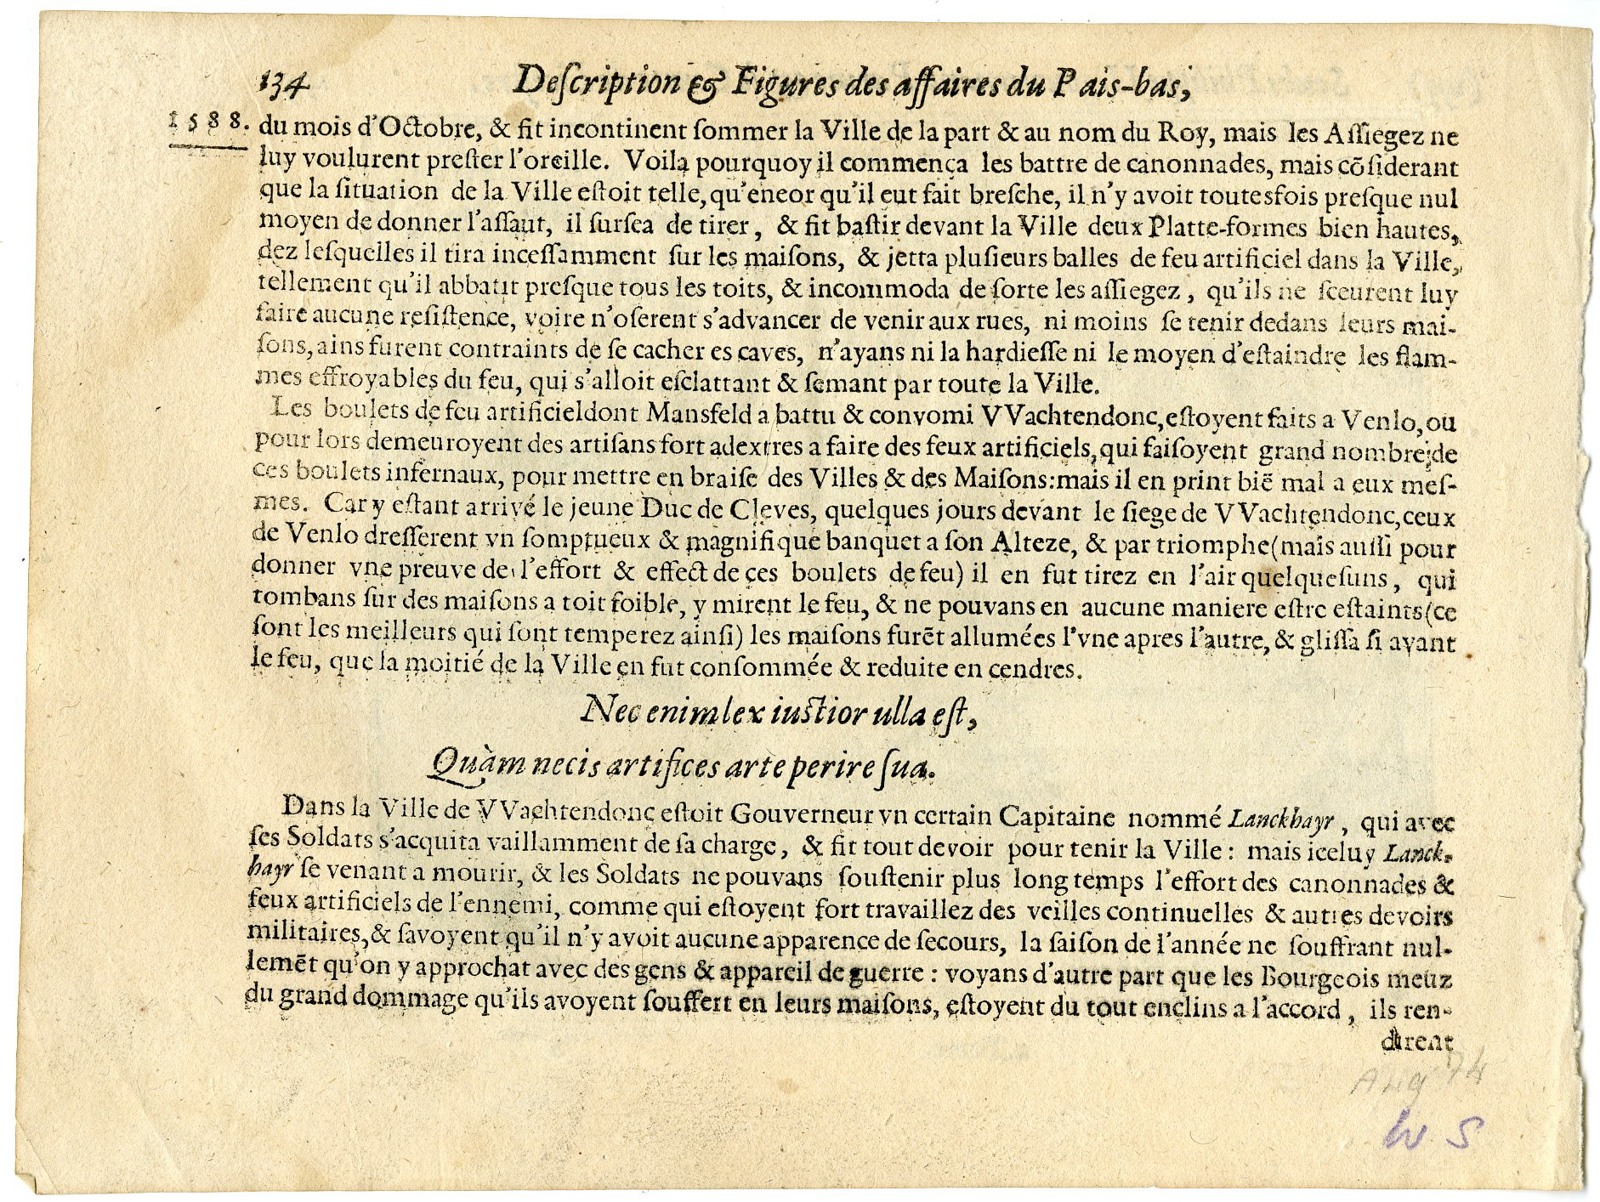 134 Deſcription & Figures des affaires du Pais-bas,
1588. du mois d'Octobre, & fit incontinent ſommer la Ville de la part & au nom du Roy, mais les Aſſiegez ne
luy voulurent preſter l'oreille. Voila pourquoy il commença les battre de canonnades, mais cõſiderant
que la ſituation de la Ville eſtoit telle, qu'encor qu'il eut fait breſche, il n'y avoit toutesfois preſque nul
moyen de donner l'aſſaut, il ſurſea de tirer, & fit baſtir devant la Ville deux Platte-formes bien hautes,
dez leſquelles il tira inceſſamment ſur les maiſons, & jetta pluſieurs balles de feu artificiel dans la Ville,
tellement qu'il abbatit preſque tous les toits, & incommoda de ſorte les aſſiegez, qu'ils ne ſceurent luy
faire aucune reſiſtence, voire n'oſerent s'advancer de venir aux rues, ni moins ſe tenir dedans leurs mai-
ſons, ains furent contraints de ſe cacher es caves, n'ayans ni la hardieſſe ni le moyen d'eſtaindre les flam-
mes effroyables du feu, qui s'alloit eſclattant & ſemant par toute la Ville.
Les boulets de feu artificieldont Mansfeld a battu & convomi VVachtendonc, eſtoyent faits a Venlo, ou
pour lors demeuroyent des artiſans fort adextres a faire des feux artificiels, qui faiſoyent grand nombre de
ces boulets infernaux, pour mettre en braiſe des Villes & des Maiſons: mais il en print biẽ mal a eux meſ-
mes. Car y eſtant arrivé le jeune Duc de Cleves, quelques jours devant le ſiege de VVachtendonc, ceux
de Venlo dreſſerent vn ſomptueux & magnifique banquet a ſon Alteze, & par triomphe (mais auſſi pour
donner vne preuve de l'effort & effect de ces boulets de feu) il en fut tirez en l'air quelqueſuns, qui
tombans ſur des maiſons a toit foible, y mirent le feu, & ne pouvans en aucune maniere eſtre eſtaints (ce
ſont les meilleurs qui ſont temperez ainſi) les maiſons furẽt allumées l'vne apres l'autre, & gliſſa ſi avant
le feu, que la moitié de la Ville en fut conſommée & reduite en cendres.
Nec enim lex iuſtior ulla eſt,
Quàm necis artifices arte perire ſua.
Dans la Ville de VVachtendonc eſtoit Gouverneur vn certain Capitaine nommé Lanckhayr, qui avec
ſes Soldats s'acquita vaillamment de ſa charge, & fit tout devoir pour tenir la Ville: mais iceluy Lanck-
hayr ſe venant a mourir, & les Soldats ne pouvans ſouſtenir plus long temps l'effort des canonnades &
feux artificiels de l'ennemi, comme qui eſtoyent fort travaillez des veilles continuelles & autres devoirs
militaires, & ſavoyent qu'il n'y avoit aucune apparence de ſecours, la ſaiſon de l'année ne ſouffrant nul-
lemẽt qu'on y approchat avec des gens & appareil de guerre: voyans d'autre part que les Bourgeois meuz
du grand dommage qu'ils avoyent ſouffert en leurs maiſons, eſtoyent du tout enclins a l'accord, ils ren-
dirent
Aug 74
W S